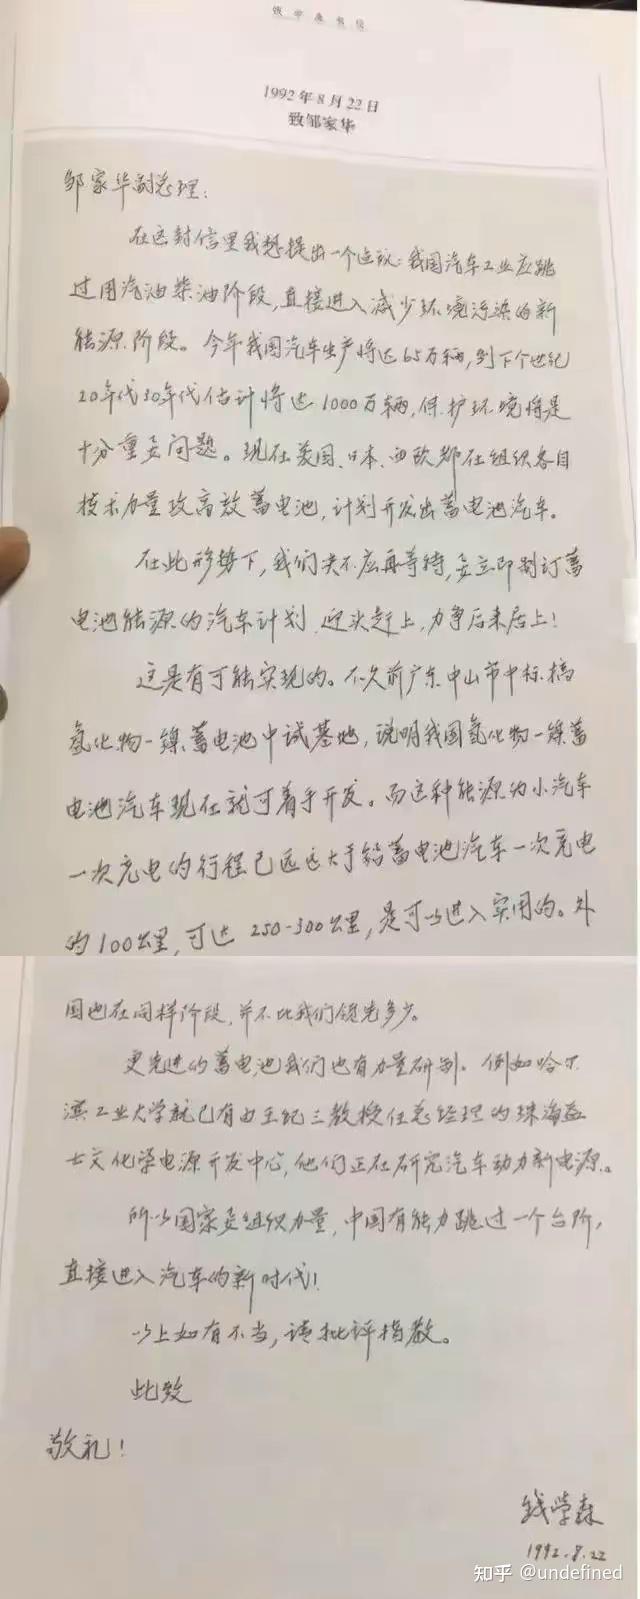 钱学森书信
1992年8月22日
致邹家华
邹家华副总理：
在这封信里我想提出一个建议：我国汽车工业应跳
过用汽油柴油阶段，直接进入减少环境污染的新
能源阶段。今年我国汽车生产将达65万辆，到下个世纪
20年代30年代估计将达1000万辆，保护环境将是
十分重要问题。现在美国、日本、西欧都在组织各自
技术力量攻高效蓄电池，计划开发出蓄电池汽车。
在此形势下，我们决不应再等待，要立即制订蓄
电池能源的汽车计划，迎头赶上，力争后来居上！
这是有可能实现的。不久前广东中山市中标搞
氢化物一镍蓄电池中试基地，说明我国氢化物一镍蓄
电池汽车现在就可着手开发。而这种能源为小汽车
一次充电的行程已远远大于铅蓄电池汽车一次充电
的100公里，可达250-300公里，是可以进入实用的。外
国也在同样阶段，并不比我们领先多少。
更先进的蓄电池我们也有力量研制。例如哈尔
滨工业大学就已有由王纪三教授任总经理的珠海益
士文化学电源开发中心，他们正在研究汽车动力新电源。
所以国家要组织力量，中国有能力跳过一个台阶，
直接进入汽车的新时代！
以上如有不当，请批评指教。
此致
敬礼！
钱学森
1992.8.22
知乎 @undefined